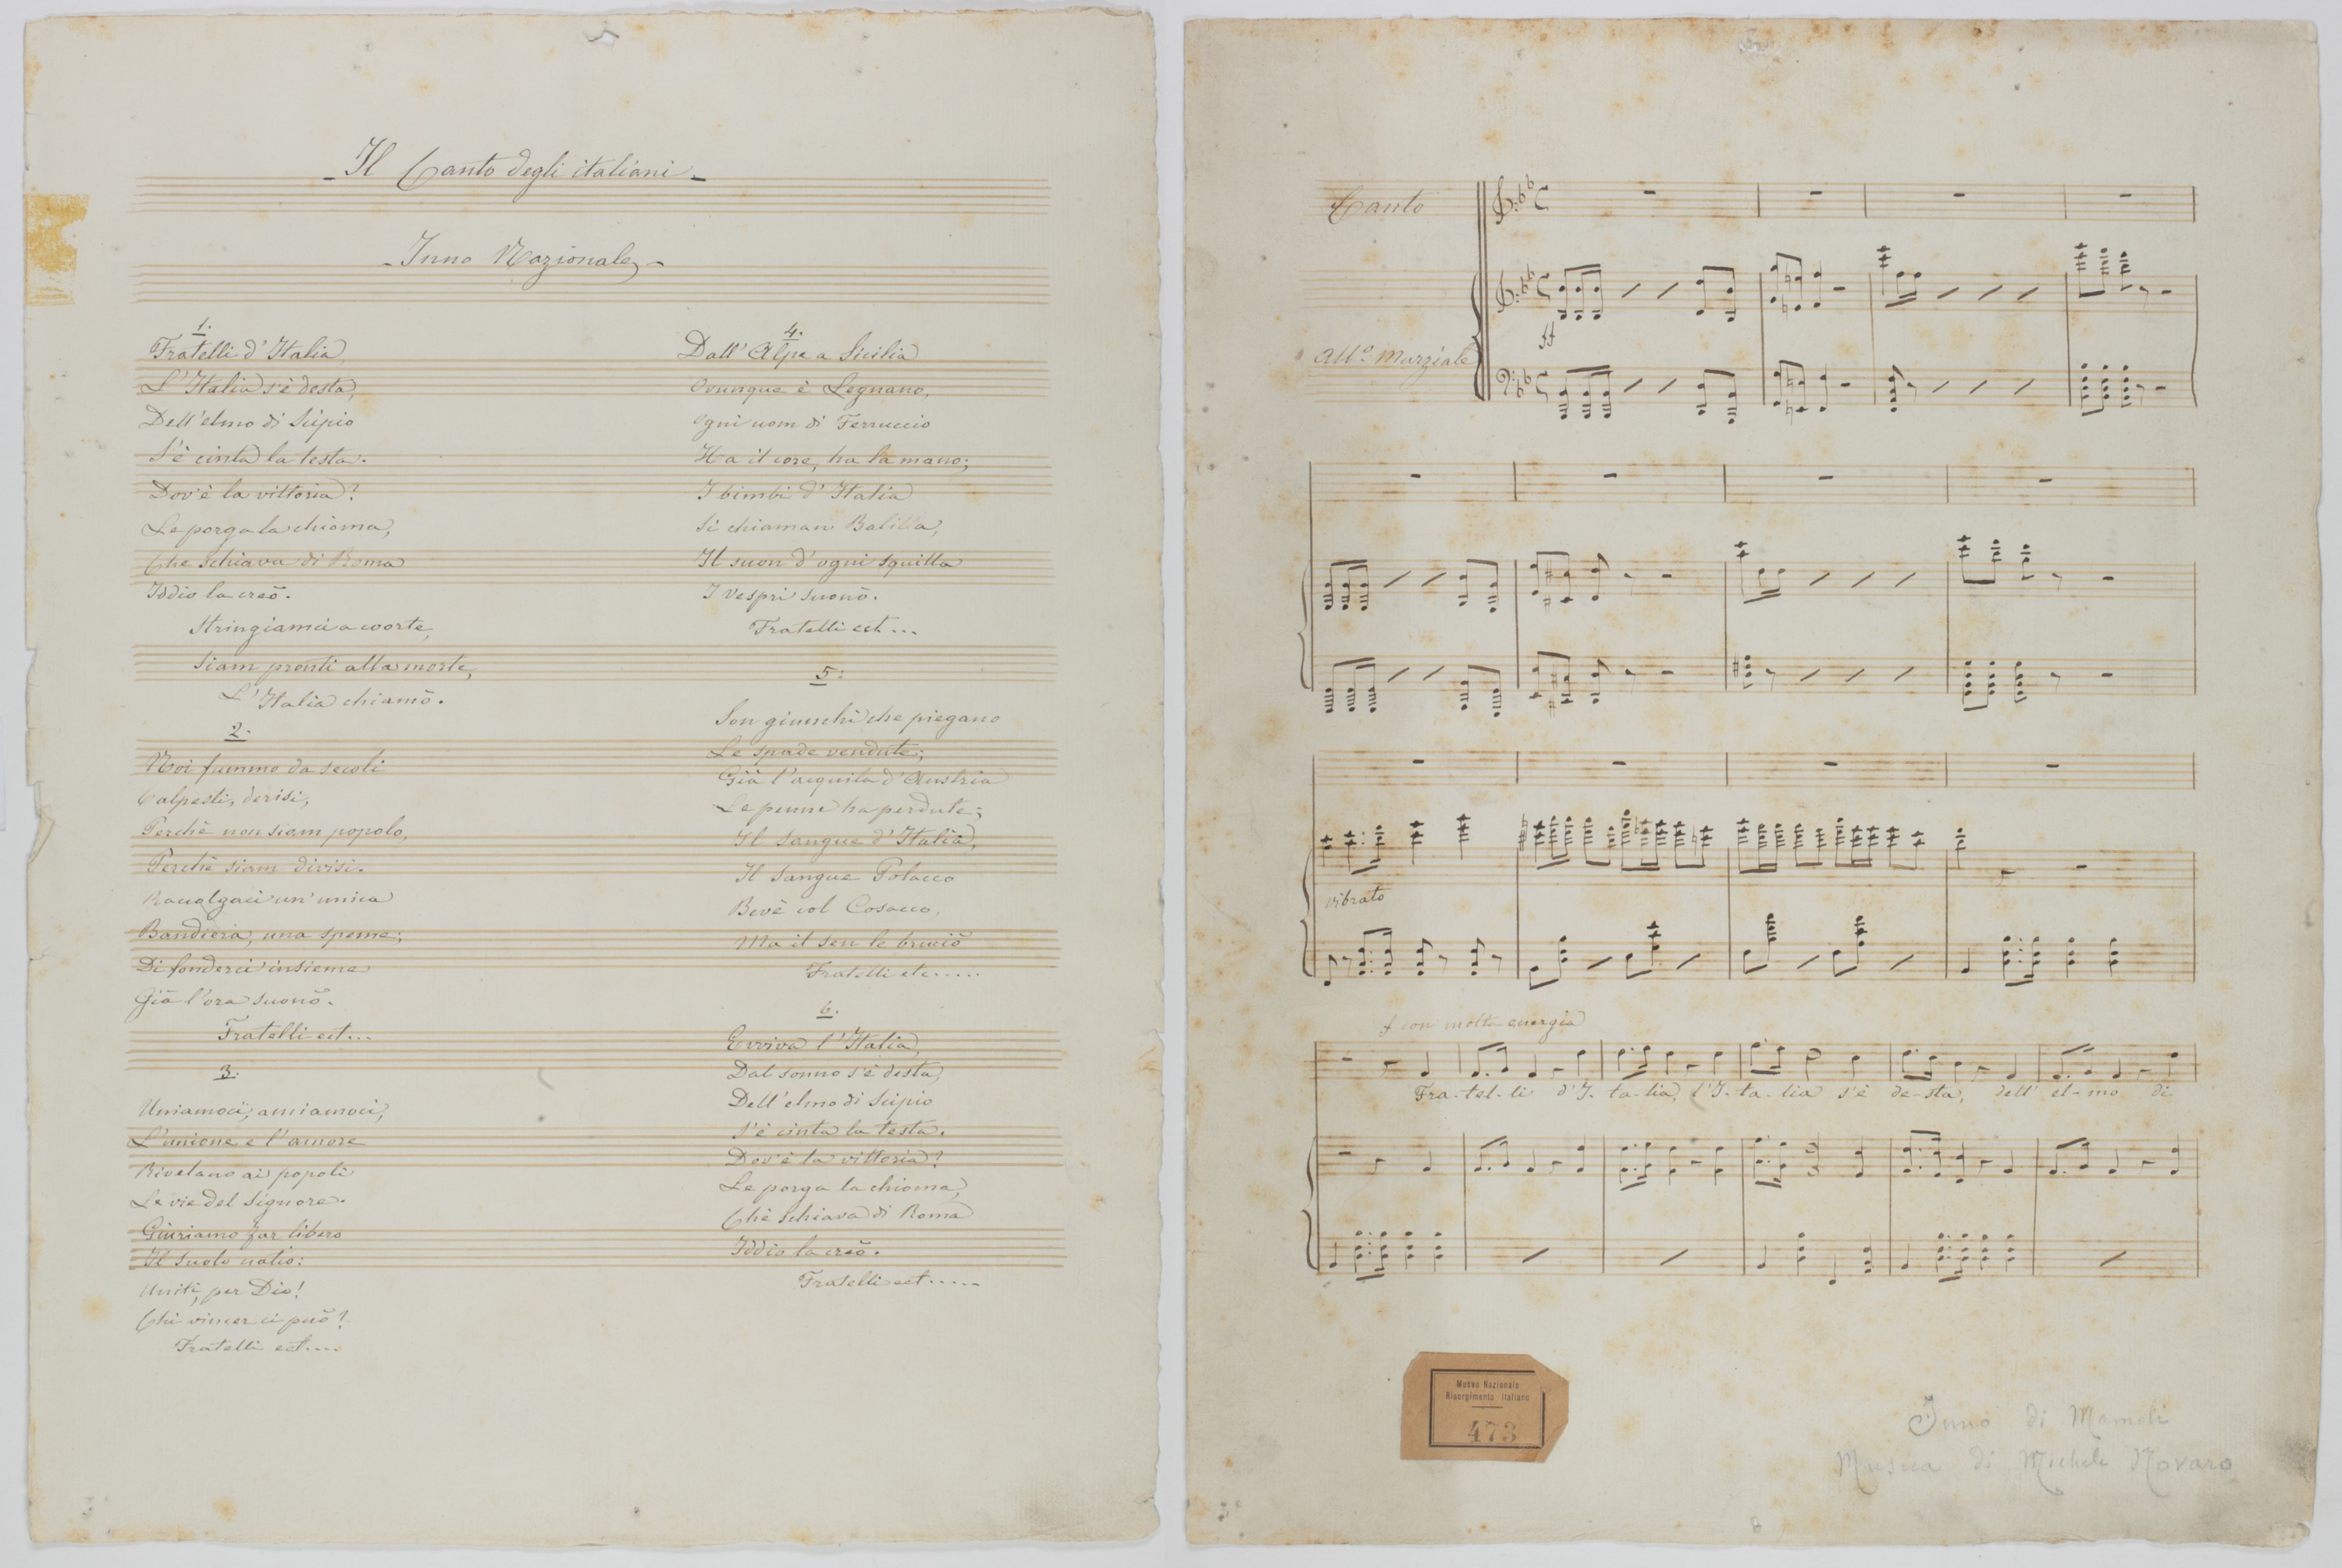 Il Canto degli italiani
Inno Nazionale
1.
Fratelli d'Italia
L'Italia s'è desta,
Dell'elmo di Scipio
S'è cinta la testa.
Dov'è la vittoria?
Le porga la chioma,
Che schiava di Roma
Iddio la creò.
Stringiamci a coorte,
Siam pronti alla morte,
L'Italia chiamò.
2.
Noi fummo da secoli
Calpesti, derisi,
Perchè non siam popolo,
Perchè siam divisi.
Raccolgaci un'unica
Bandiera, una speme;
Di fonderci insieme
Già l'ora suonò.
Fratelli ect...
3.
Uniamoci, amiamoci,
L'unione e l'amore
Rivelano ai popoli
Le vie del Signore.
Giuriamo far libero
Il suolo natio:
Uniti, per Dio!
Chi vincer ci può?
Fratelli ect....
4.
Dall'Alpe a Sicilia
Ovunque è Legnano,
Ogni uom di Ferruccio
Ha il core, ha la mano;
I bimbi d'Italia
Si chiaman Balilla,
Il suon d'ogni squilla
I Vespri suonò.
Fratelli ect...
5.
Son giunchi che piegano
Le spade vendute;
Già l'acquila d'Austria
Le penne ha perdute;
Il sangue d'Italia,
Il sangue Polacco
Bevè col Cosacco,
Ma il sen le bruciò
Fratelli etc.....
6.
Evviva l'Italia,
Dal sonno s'è desta,
Dell'elmo di Scipio
S'è cinta la testa.
Dov'è la vittoria?
Le porga la chioma,
Chè schiava di Roma
Iddio la creò.
Fratelli ect.....
Canto
ff
All.o Marziale
vibrato
f con molta energia
Fra-tel-li d'I-ta-lia, l'I-ta-lia s'è de-sta, dell' el-mo di
Museo Nazionale
Risorgimento Italiano
473
Inno di Mameli
Musica di Michele Novaro